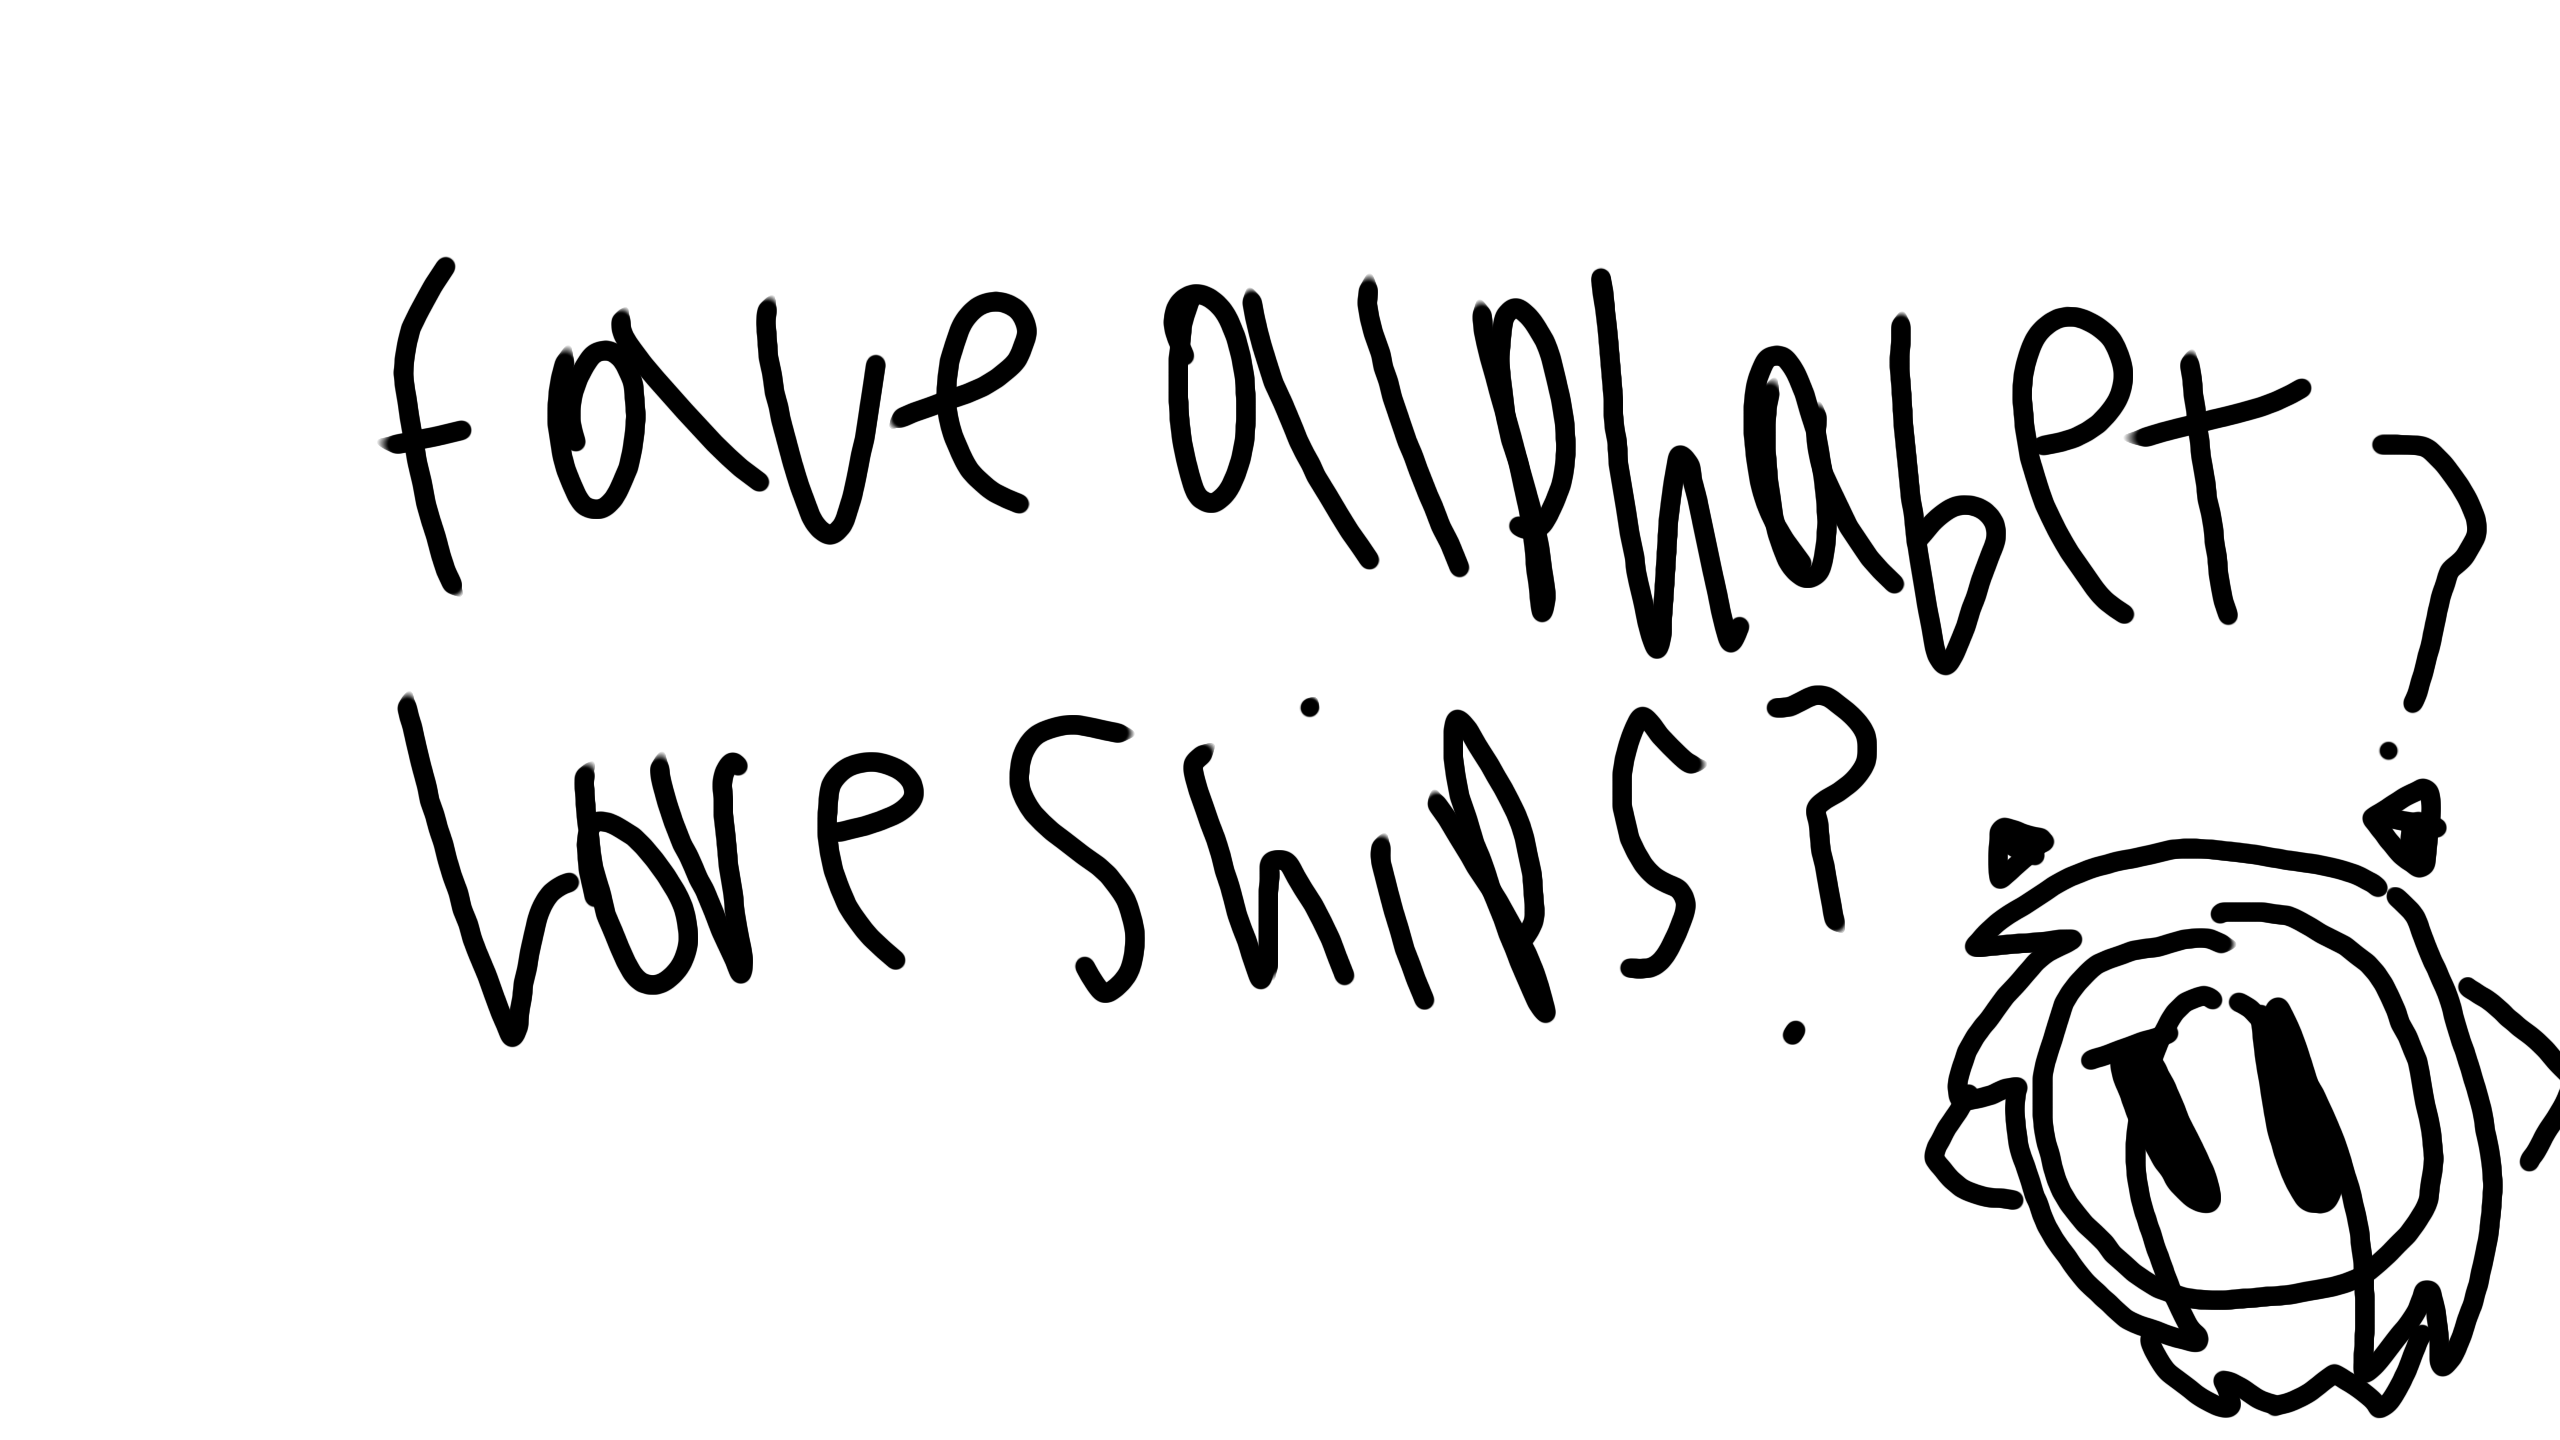 fave alphabet?
love ships?